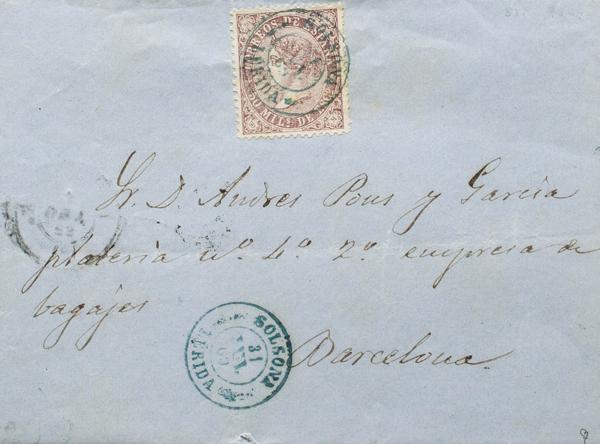 CORREOS DE ESPAÑA
50 MILS DE ESC
SOLSONA
LERIDA
Sr. D. Andres Pons y Garcia
plateria nº. 4º 2º. empresa de
bagajes
Barcelona.
SOLSONA
31
JUL
LERIDA